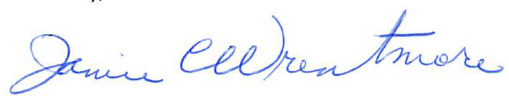 Janice C Wrentmore